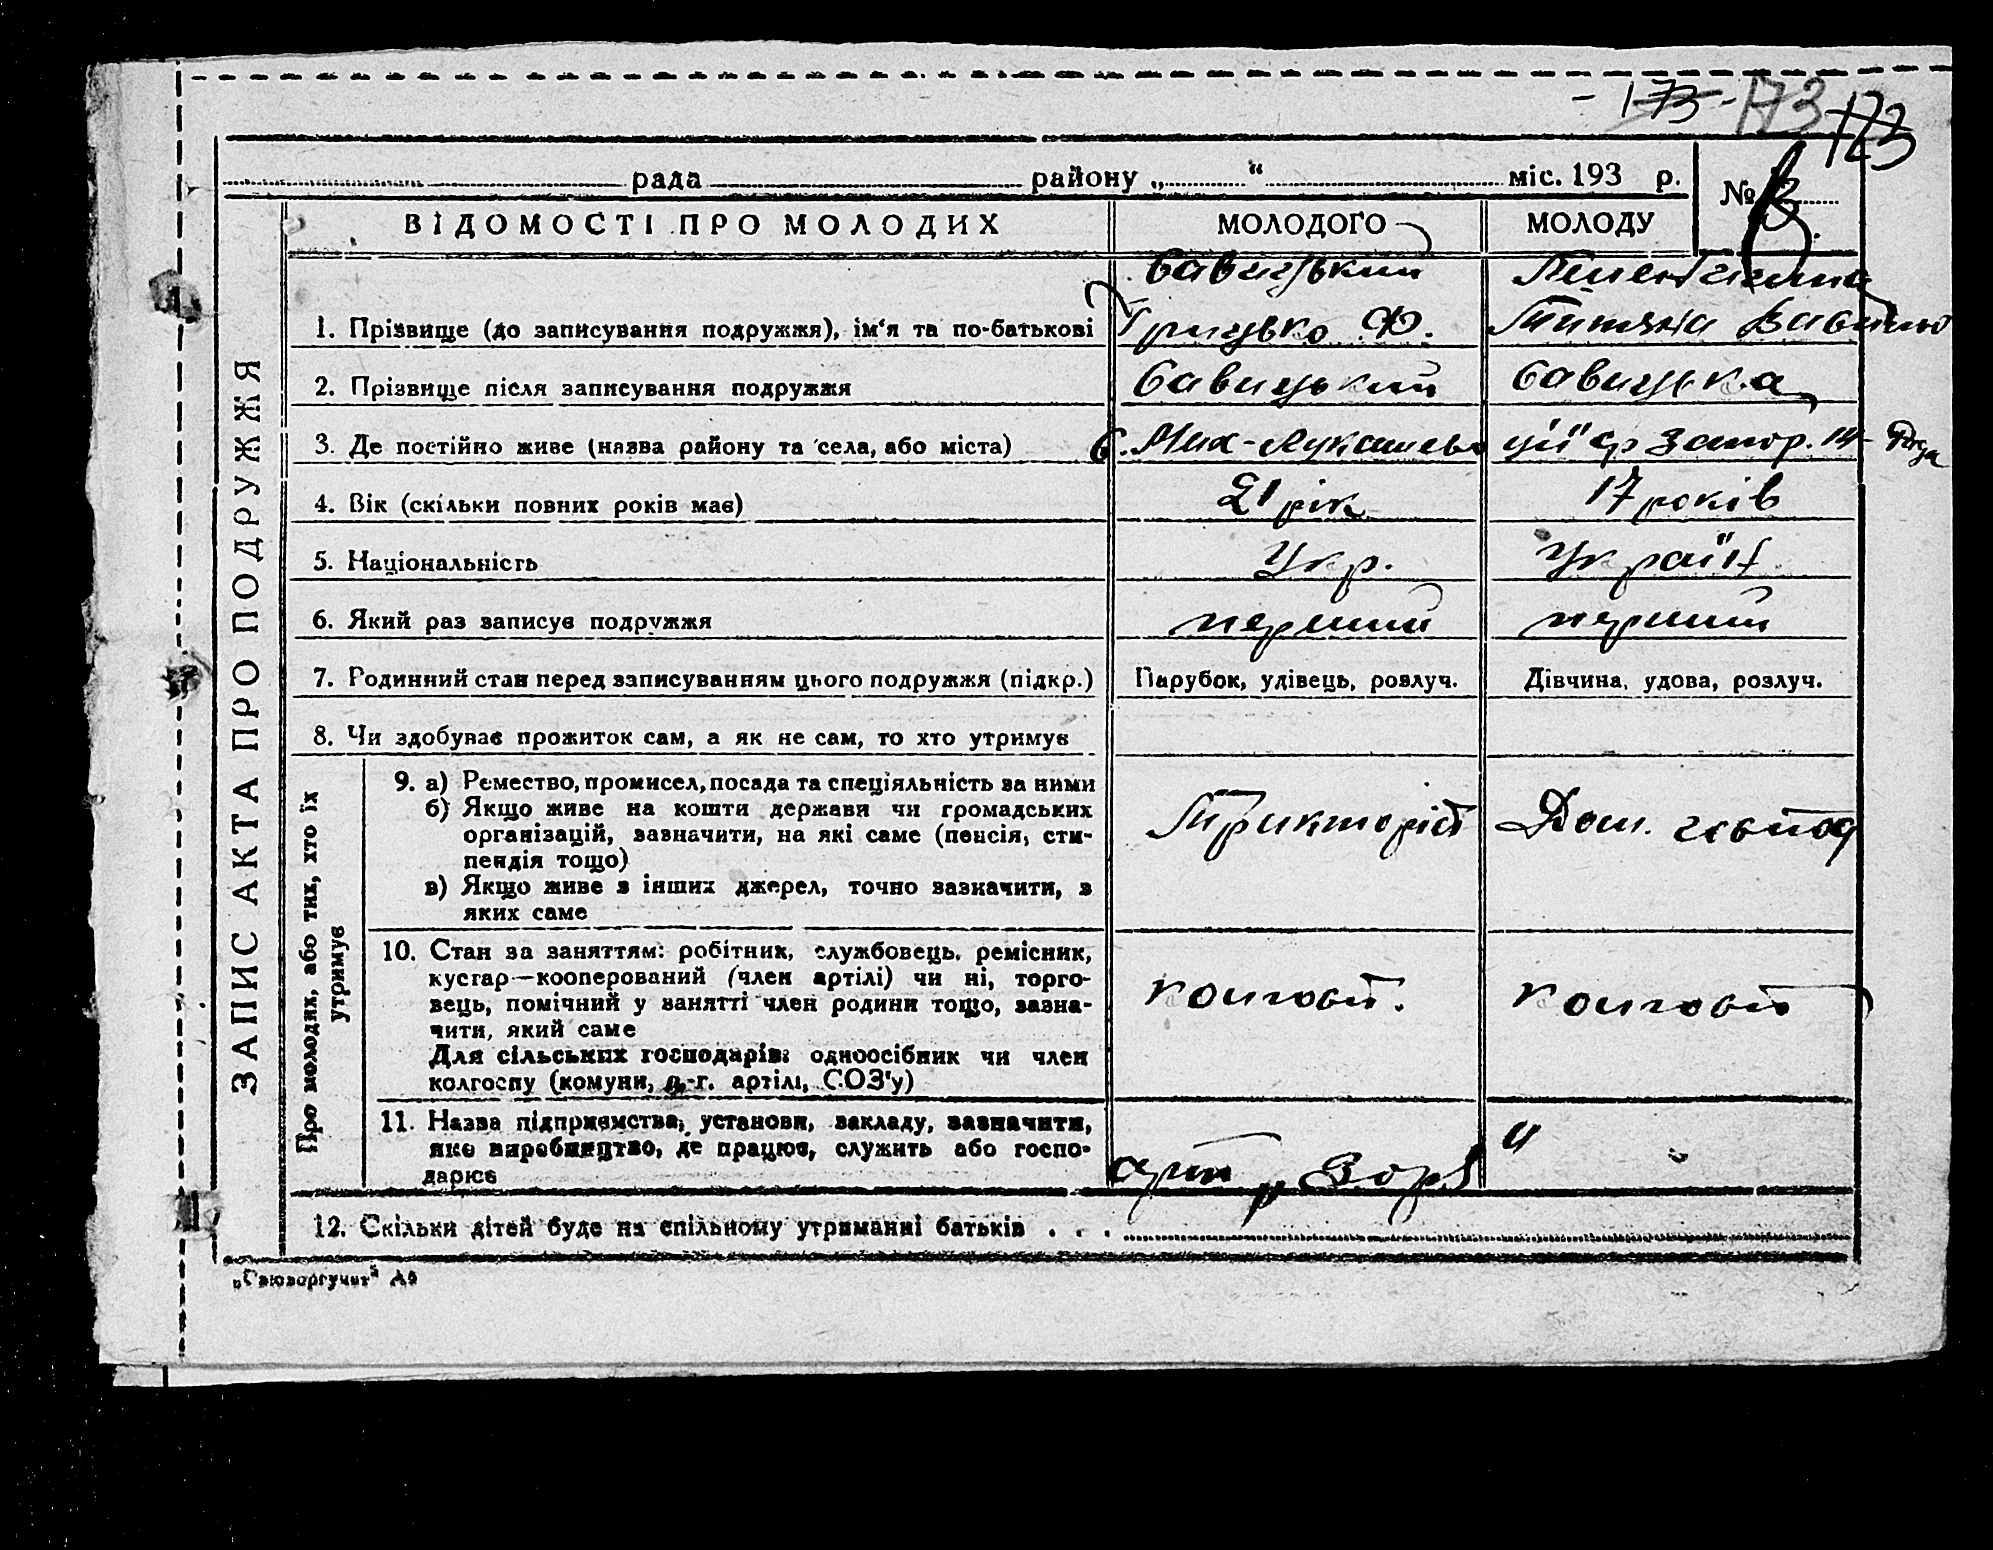 - 173 - 173 173
рада району „ “ міс. 193 р. №
ВІДОМОСТІ ПРО МОЛОДИХ МОЛОДОГО МОЛОДУ
Савицький
1. Прізвище (до записування подружжя), ім‘я та по-батькові Грицько Ф. Тетяна
2. Прізвище після записування подружжя Савицький Савицька
3. Де постійно живе (назва району та села, або міста) С. Мих-Лукашево Запор.
4. Вік (скільки повних років має) 21 рік 17 років
5. Національність Укр. Україн
6. Який раз записує подружжя перший перший
7. Родинний стан перед записуванням цього подружжя (підкр.) Парубок, удівець, розлуч. Дівчина, удова, розлуч.
8. Чи здобуває прожиток сам, а як не сам, то хто утримує
9. а) Ремество, промисел, посада та спеціяльність за ними
б) Якщо живе на кошти держави чи громадських Тракторіст Дом. господ
організацій, зазначити, на які саме (пенсія, сти-
пендія тощо)
в) Якщо живе з інших джерел, точно зазначити, з
яких саме
10. Стан за заняттям: робітник, службовець, ремісник,
кустар—кооперований (член артілі) чи ні, торго-
вець, помічний у занятті член родини тощо, зазна- колгосп. колгосп
чити, який саме
Для сільських господарів: одноосібник чи член
колгоспу (комуни, с.-г. артілі, СОЗ'у)
11. Назва підприємства, установи, закладу, зазначити,
яке виробництво, де працює, служить або госпо- арт „Зоря “
дарює
12. Скільки дітей буде на спільному утриманні батьків . . .
ЗАПИС АКТА ПРО ПОДРУЖЖЯ
Про молодих, або тих, хто їх
утримує